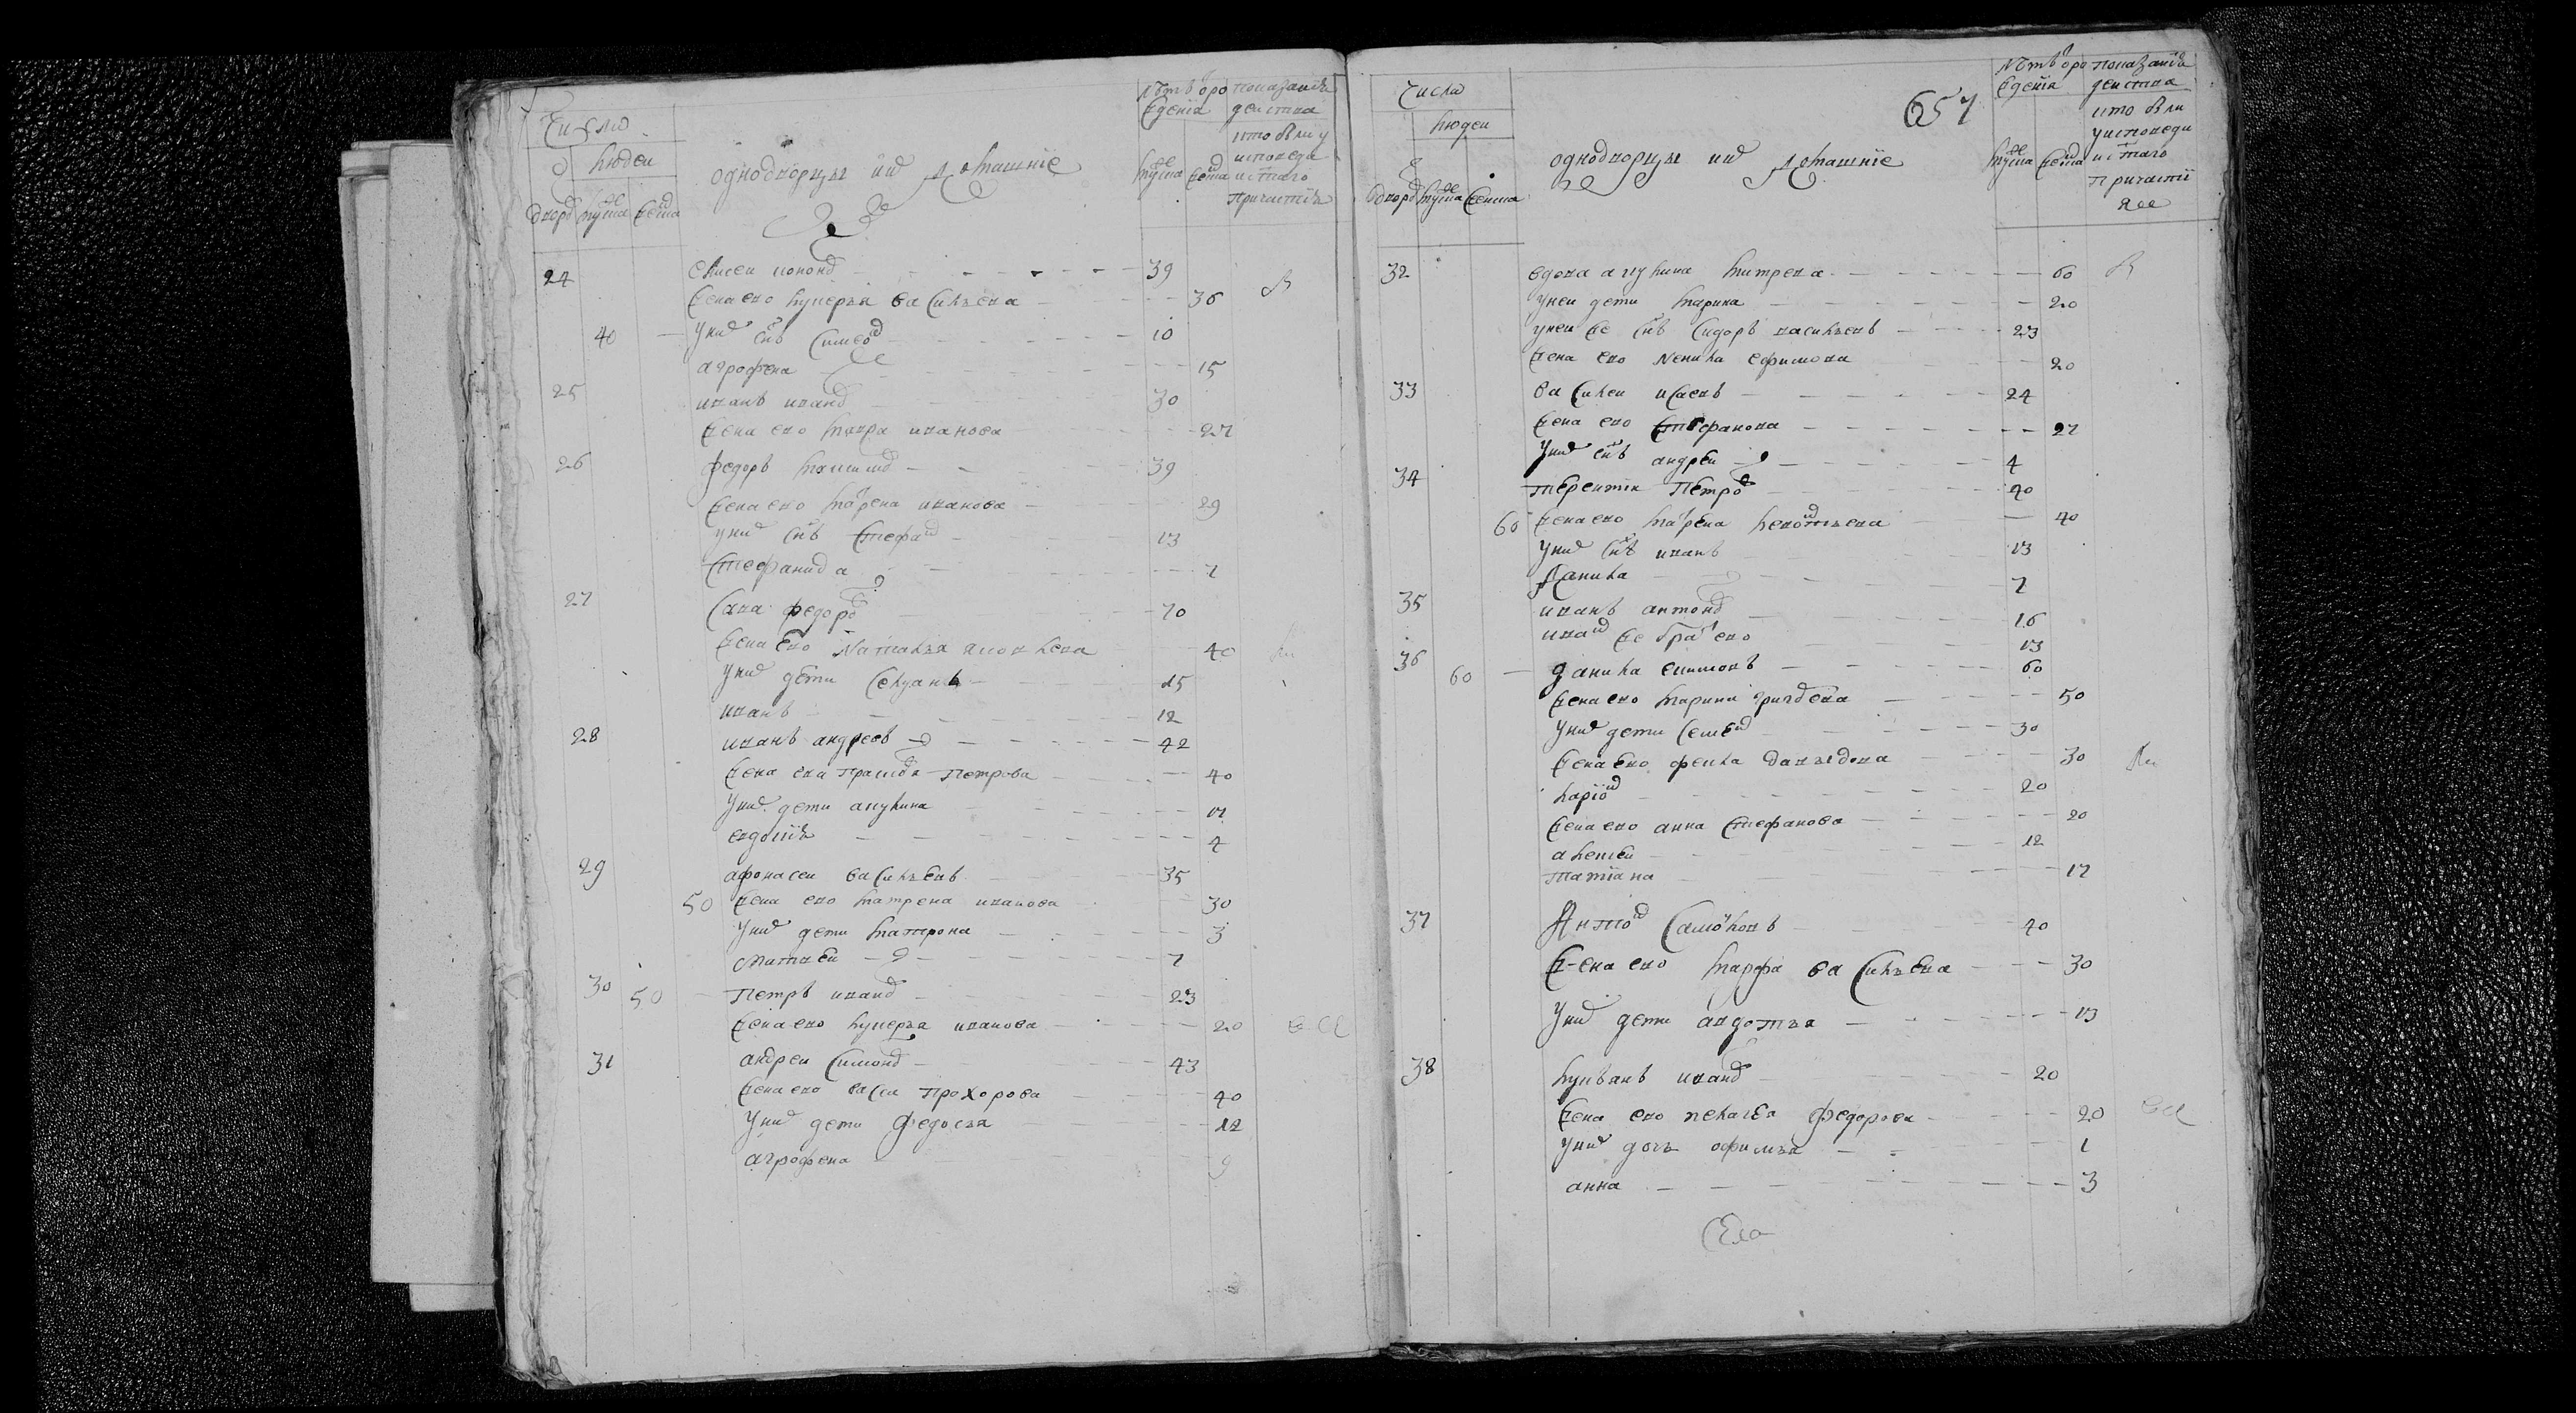 Число
людеи
дворо муже женска
однодворцы и их домашние
лѣтъ от рождения
муже женска
показание деиства кто был у исповеди и с:таго причастия
24 елисеи конон 39
жена ево лукерья василъева 36
40 у них снъ симео 10
агрофена 15
25 иванъ иванов 30
жена ево мавра иванова 27
26 федоръ максимов 39
жена ево матрена иванова 29
у них снъ стефан 13
стефанида 7
27 сава федоро 70
жена ево наталъя яковлева 40
у них дети селуанъ 15
иванъ 12
28 иванъ андреевъ 42
жена ева прасков петрова 40
у них дети акулина
евдокия 4
29 афонасеи василъевъ 35
50 жена ево матрена иванова 30
у них дети матрона 3
матвеи 7
30 50 петръ иванов 23
жена ево лукерья иванова 20
31 андреи симонов 43
жена ево васса прохорова 40
у них дети федосъя 12
агрофена 9
Числа
людеи
дворо муже женска
однодворцы и их домашние
657
лѣтъ от рождения
муже женска
показания деиства кто был у исповеди и с:таго причастия
32 вдова акулина митрева 60
у неи дети марина 20
у неи же снъ сидоръ василъевъ 23
жена ево ненила ефимова 20
33 василеи исаевъ 24
жена ево стефанова 27
у них снъ андреи 4
34 терентии петро 40
60 жена ево матрена леонтъева 40
у них снъ иванъ 13
данила 7
35 иванъ антонов 16
иван же брат ево 13
36 60 данила екимовъ 60
жена ево марина григоръева 50
у них дети семен 30
жена ево фекла давыдова 30
ларион 20
жена ево анна стефанова 20
алексеи 12
татиана 17
37 Антон самоиловъ 40
жена ево марфа василъева 30
у них дети авдотъя 13
38 иванов 20
жена ево пелагея федорова 20
у них дочъ офимъя 1
анна 3